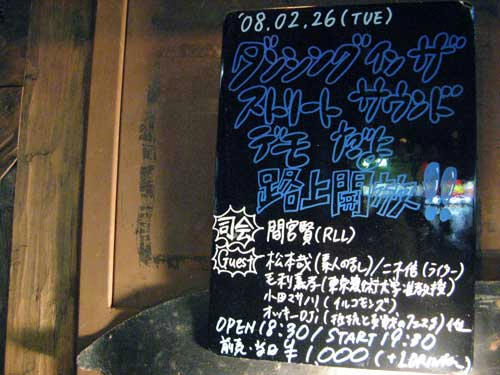 '08.02.26(TUE)
ダンシング イン ザ
ストリート サウンド
デモ だよ
路上開放!!
司会 間宮賢(RLL)
Guest 松本哉(素人の乱)/二木信(ライター)
毛利嘉孝(東京芸術大学准教授)
小田マサノリ(イルコモンズ)
オッキーDJ(抵抗と 他
OPEN 18:30/START 19:30
前売・当日 ¥1,000(+1DRINK